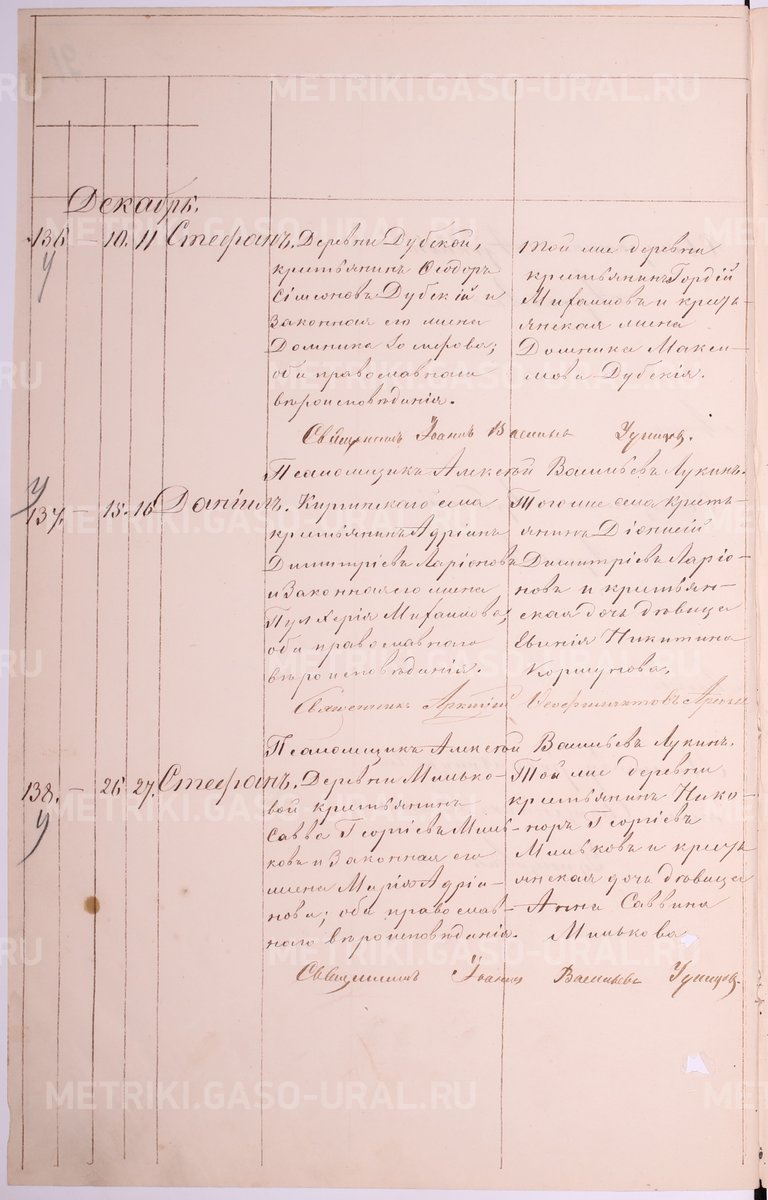 Декабрь.
136 – 10. 11 Стефанъ. Деревни Дубской,
крестьянинъ Ѳеодоръ
Сімеоновъ Дубскій и
законная его жена
Домника
оба православнаго
вѣроисповѣданія.
той же деревни
крестьянинъ Гордій
Михаиловъ и кресть-
янская жена
Домника Макси-
мова Дубскія.
Священникъ Іоаннъ
Псаломщикъ Алексѣй Васильевъ Лукинъ.
137. – 15. 16 Даніилъ. села
крестьянинъ Адріанъ
Димитріевъ Ларіоновъ
и законная его жена
Пулхерія Михаилова;
оба православнаго
вѣроисповѣданія.
Того же села кресть-
янинъ Діонисій
Димитріевъ Ларіо-
новъ и крестьян-
ская дочь дѣвица
Никитина
Коршунова.
Священникъ
Псаломщикъ Алексѣй Васильевъ Лукинъ.
138. – 26 27. Стефанъ. Деревни Милько-
вой крестьянинъ
Савва Георгіевъ Миль-
ковъ и законная его
жена Марія Адріа-
нова; оба православ-
наго вѣроисповѣданія.
Той же деревни
крестьянинъ Нико-
норъ Георгіевъ
Мильковъ и кресть
янская дочь дѣвица
Анна Саввина
Милькова
Священникъ Іоаннъ Васильевъ
METRIKI.GASO-URAL.RU